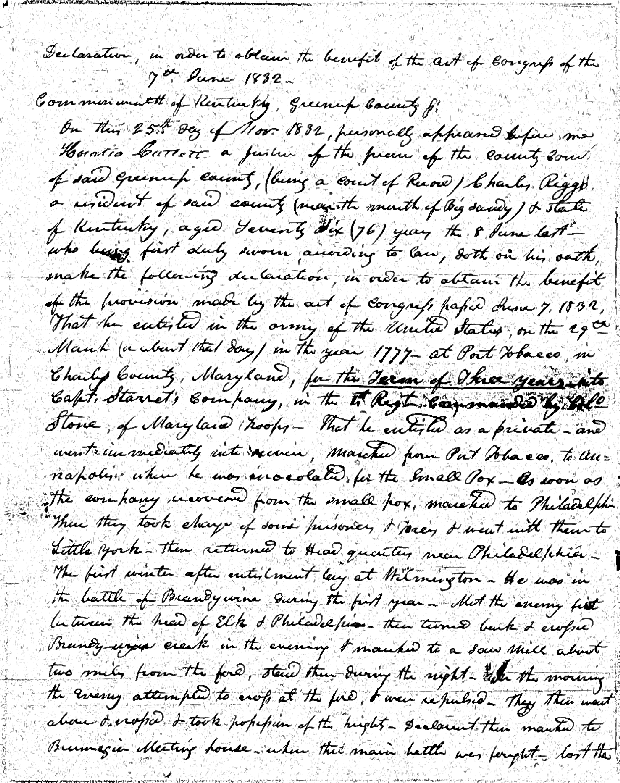 Declaration, in order to obtain the benefit of the act of Congress of the
7th June 1832 -
Commonwealth of Kentucky, Greenup County
On this 25th day of Nov. 1832, personally appeared before me
a Justice of the peace of the County Court
of said Greenup County, (being a court of Record) Charles Riggs
a resident of said county (near the mouth of Big Sandy) & State
of Kentucky, aged Seventy Six (76) years the 8 June last -
who being first duly sworn according to law, doth on his oath,
make the following declaration, in order to obtain the benefit
of the provision made by the act of Congress passed June 7, 1832,
That he enlisted in the army of the United States, on the 29th
March (or about that day) in the year 1777 - at Port Tobacco, in
Charles County, Maryland, for the Term of Three years into
Capt. Company, in the Regt. Commanded by Col
Stone, of Maryland troops - That he enlisted as a private - and
went immediately into service, marched from Port Tobacco, to An-
napolis, where he was inoculated, for the Small Pox - As soon as
the company recovered from the small pox, marched to Philadelphia
There they took charge of some prisoners & went with them to
Little York - then returned to Head quarters near Philadelphia -
The first winter after enlistment lay at Wilmington - He was in
the battle of Brandywine during the first year - Met the enemy first
between the head of Elk & Philadelphia - then turned back & crossed
creek in the evening & marched to a Saw Mill about
two miles from the ford, staid there during the night - In the morning
the enemy attempted to cross at the ford, & were repulsed - They then went
above & crossed & took possession of the heights - Declarant then marched to
Meeting house - where the main battle was fought - lost the